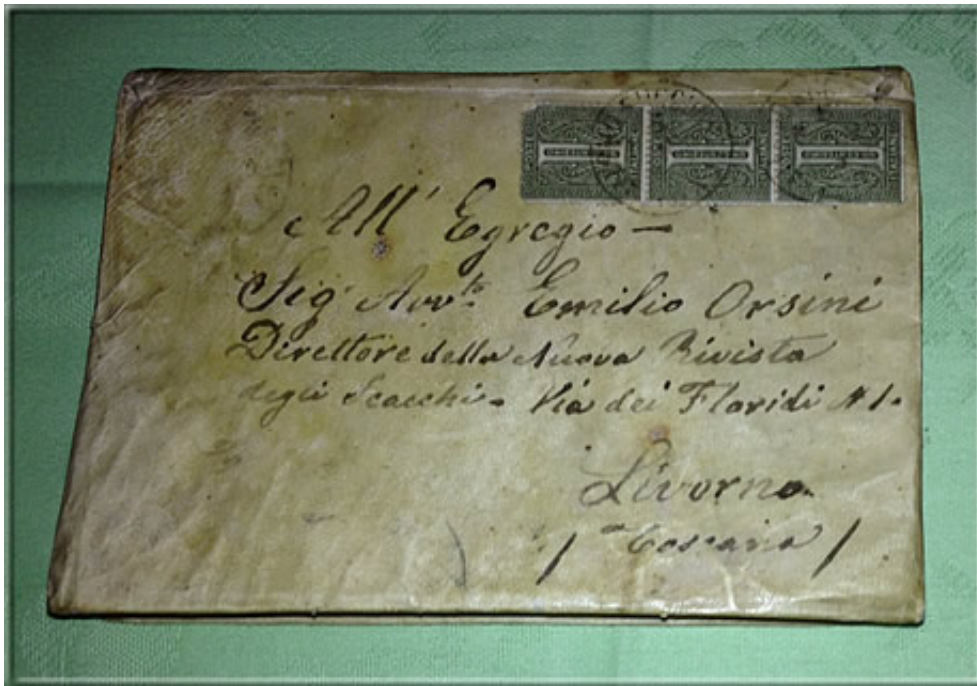 All' Egregio —
Sig. Avv.to Emilio Orsini
Direttore della Nuova Rivista
degli Scacchi - Via dei Floridi N 1.
Livorno
/ Toscana /